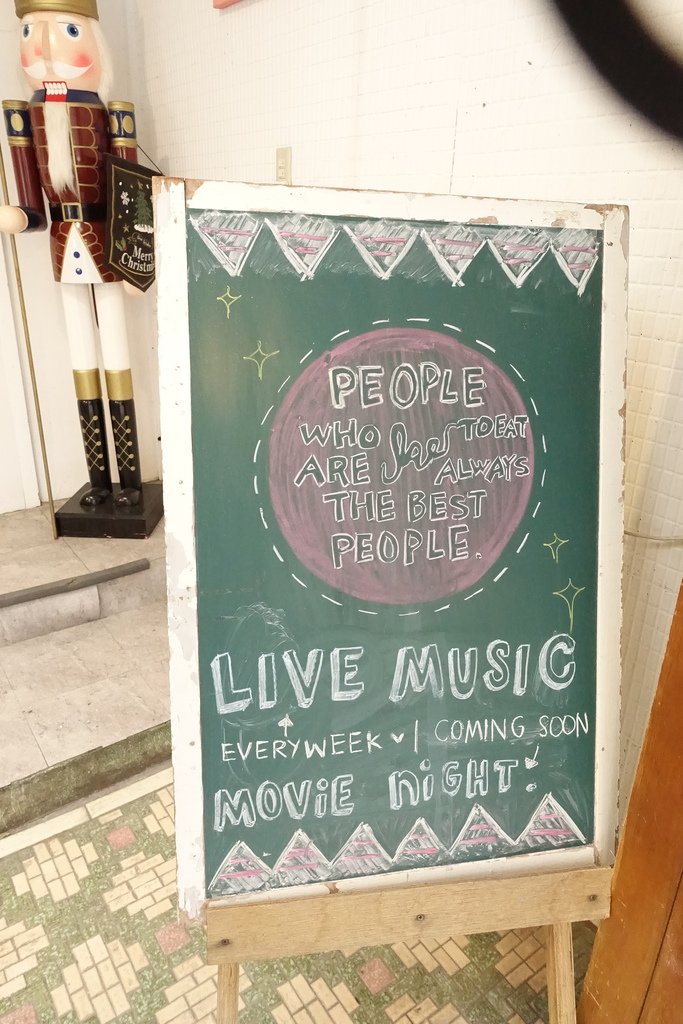 Merry
Christmas
PEOPLE
WHO love TO EAT
ARE ALWAYS
THE BEST
PEOPLE.
LIVE MUSIC
EVERYWEEK | COMING SOON
MOVIE NIGHT!